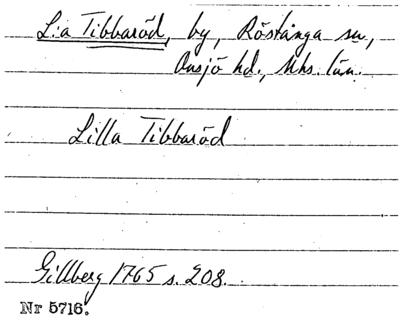 L:a Tibbaröd, by, Röstånga sn,
Onsjö hd., Mhs. län.
Lilla Tibbaröd
Gillberg 1765 s. 208.
Nr 5716.